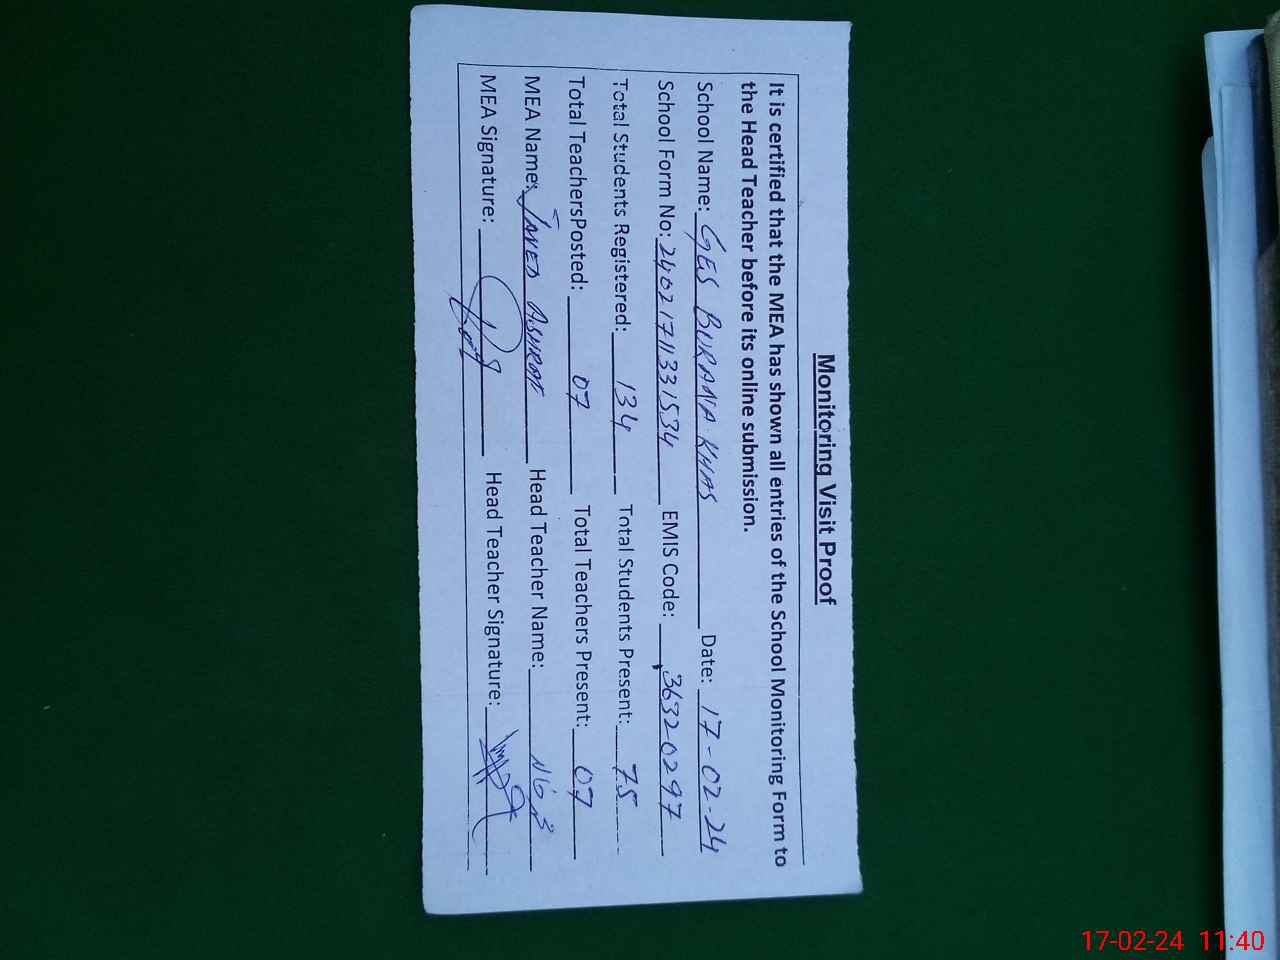 Monitoring Visit Proof
It is certified that the MEA has shown all entries of the School Monitoring Form to
the Head Teacher before its online submission.
School Name: GES BURANA KHAS Date: 17-02-24
School Form No: 24021711331534 EMIS Code: 36320297
Total Students Registered: 134 Total Students Present: 75
Total TeachersPosted: 07 Total Teachers Present: 07
MEA Name: JAVED ASHRAF Head Teacher Name:
MEA Signature: Head Teacher Signature:
17-02-24 11:40